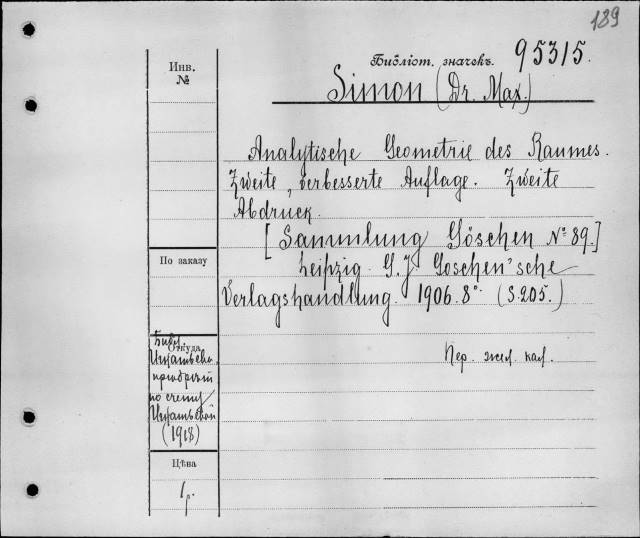 189
Библіот. значекъ. 95315.
Инв.
№
Simon (Dr. Max.)
Analytische Geometrie des Raumes.
Zweite, verbesserte Auflage. Zweite
Abdruck.
[Sammlung Göschen № 89.]
Leipzig. G. J. Goschen'sche
Verlagshandlung. 1906. 8° (S. 205.)
По заказу
Пер. жел. кал.
Откуда
Библ.
пріобрѣт
по счету
(1918)
Цѣна
1 р.